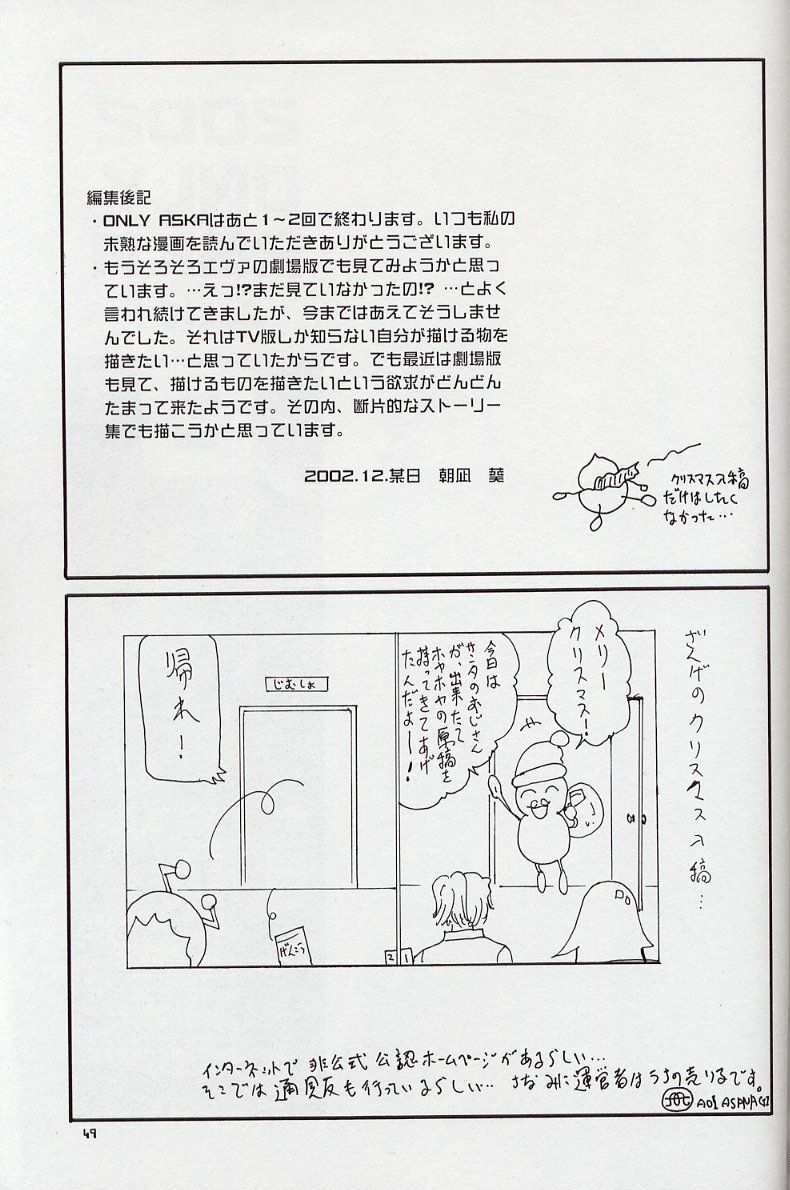 編集後記
・ONLY ASKAはあと1～2回で終わります。いつも私の
未熟な漫画を読んでいただきありがとうございます。
・もうそろそろエヴァの劇場版でも見てみようかと思っ
ています。…えっ!?まだ見ていなかったの!? …とよく
言われ続けてきましたが、今まではあえてそうしませ
んでした。それはTV版しか知らない自分が描ける物を
描きたい…と思っていたからです。でも最近は劇場版
も見て、描けるものを描きたいという欲求がどんどん
たまって来たようです。その内、断片的なストーリー
集でも描こうかと思っています。
2002.12.某日 朝凪 葵
クリスマス入稿
だけはしたく
なかった…
ざんげのクリスマス入稿…
メリー
クリスマス!
今日は
サンタのおじさん
が、出来たて
ホヤホヤの原稿を
持ってきてあげ
たんだよー!
1
じむしょ
帰れ!
げんこう
2
インターネットで 非公式 公認 ホームページがあるらしい…
そこでは 通販も行っているらしい… ちなみに運営者はうちの売り子です。
AOI ASANAGI
49